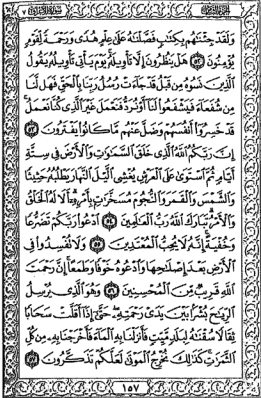 الجزء الثامن سورة الأعراف ٧
وَلَقَدْ جِئْنَٰهُم بِكِتَٰبٍ فَصَّلْنَٰهُ عَلَىٰ عِلْمٍ هُدًى وَرَحْمَةً لِّقَوْمٍ
يُؤْمِنُونَ ٥٢ هَلْ يَنظُرُونَ إِلَّا تَأْوِيلَهُۥ يَوْمَ يَأْتِى تَأْوِيلُهُۥ يَقُولُ
ٱلَّذِينَ نَسُوهُ مِن قَبْلُ قَدْ جَآءَتْ رُسُلُ رَبِّنَا بِٱلْحَقِّ فَهَل لَّنَا
مِن شُفَعَآءَ فَيَشْفَعُوا۟ لَنَآ أَوْ نُرَدُّ فَنَعْمَلَ غَيْرَ ٱلَّذِى كُنَّا نَعْمَلُ
قَدْ خَسِرُوٓا۟ أَنفُسَهُمْ وَضَلَّ عَنْهُم مَّا كَانُوا۟ يَفْتَرُونَ ٥٣
إِنَّ رَبَّكُمُ ٱللَّهُ ٱلَّذِى خَلَقَ ٱلسَّمَٰوَٰتِ وَٱلْأَرْضَ فِى سِتَّةِ
أَيَّامٍ ثُمَّ ٱسْتَوَىٰ عَلَى ٱلْعَرْشِ يُغْشِى ٱلَّيْلَ ٱلنَّهَارَ يَطْلُبُهُۥ حَثِيثًا
وَٱلشَّمْسَ وَٱلْقَمَرَ وَٱلنُّجُومَ مُسَخَّرَٰتٍۭ بِأَمْرِهِۦٓ أَلَا لَهُ ٱلْخَلْقُ
وَٱلْأَمْرُ تَبَارَكَ ٱللَّهُ رَبُّ ٱلْعَٰلَمِينَ ٥٤ ٱدْعُوا۟ رَبَّكُمْ تَضَرُّعًا
وَخُفْيَةً إِنَّهُۥ لَا يُحِبُّ ٱلْمُعْتَدِينَ ٥٥ وَلَا تُفْسِدُوا۟ فِى
ٱلْأَرْضِ بَعْدَ إِصْلَٰحِهَا وَٱدْعُوهُ خَوْفًا وَطَمَعًا إِنَّ رَحْمَتَ
ٱللَّهِ قَرِيبٌ مِّنَ ٱلْمُحْسِنِينَ ٥٦ وَهُوَ ٱلَّذِى يُرْسِلُ
ٱلرِّيَٰحَ بُشْرًۢا بَيْنَ يَدَىْ رَحْمَتِهِۦ حَتَّىٰٓ إِذَآ أَقَلَّتْ سَحَابًا
ثِقَالًا سُقْنَٰهُ لِبَلَدٍ مَّيِّتٍ فَأَنزَلْنَا بِهِ ٱلْمَآءَ فَأَخْرَجْنَا بِهِۦ مِن كُلِّ
ٱلثَّمَرَٰتِ كَذَٰلِكَ نُخْرِجُ ٱلْمَوْتَىٰ لَعَلَّكُمْ تَذَكَّرُونَ ٥٧
١٥٧